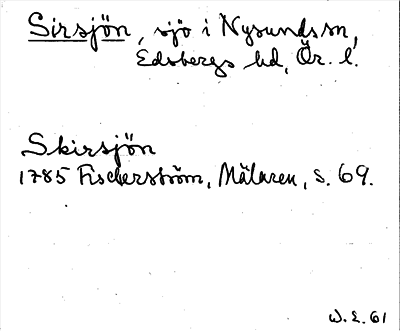 Sirsjön, sjö i Nysunds sn,
Edsbergs hd, Ör. l.
Skirsjön
1785 Fischerström, Mälaren, s. 69.
W. E. 61